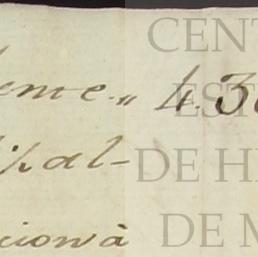 eme „ 4.3
ipal-
cion à
CENT
EST
DE H
DE M